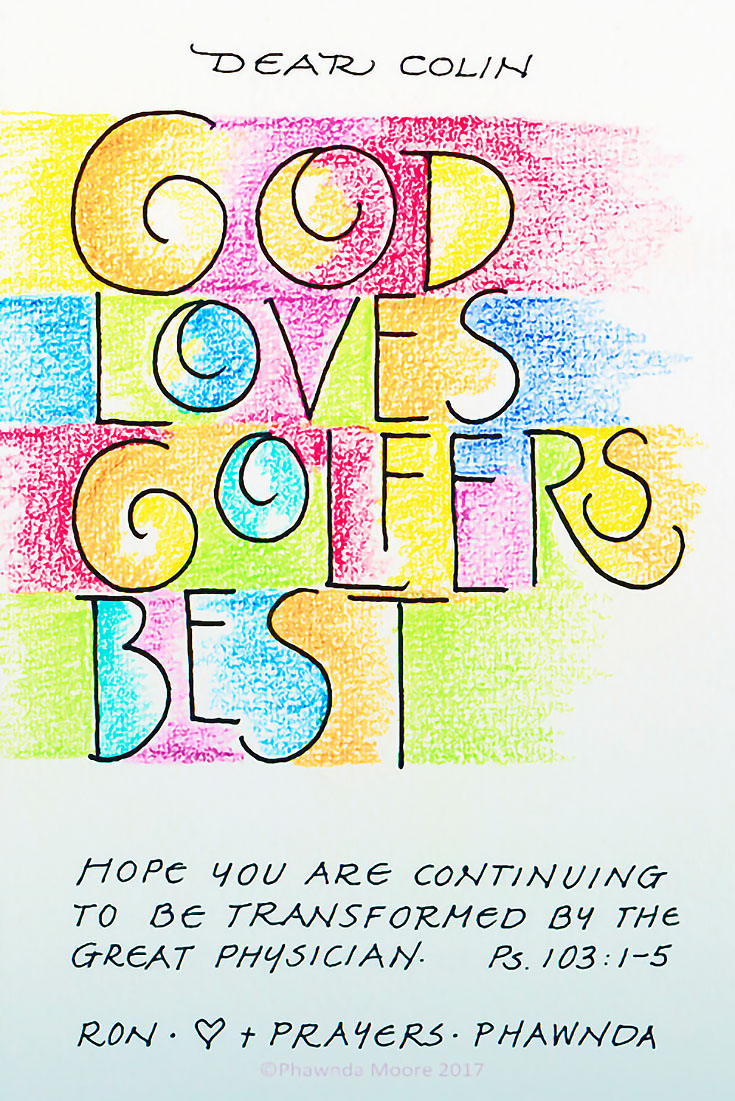 DEAR COLIN
GOD
LOVES
GOLFERS
BEST
HOPE YOU ARE CONTINUING
TO BE TRANSFORMED BY THE
GREAT PHYSICIAN. Ps. 103:1-5
RON · ♡ + PRAYERS · PHAWNDA
©Phawnda Moore 2017